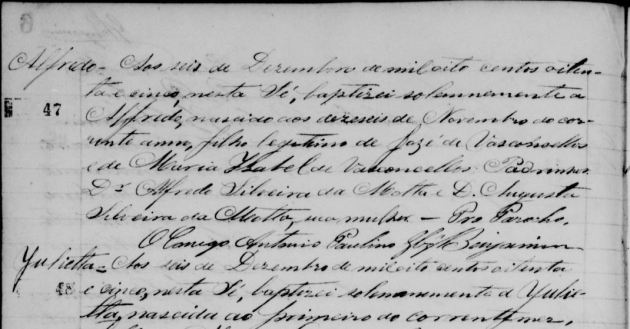 Alfredo - Aos seis de Dezembro de mil oito centos oiten-
ta e cinco, nesta Sé, baptizei solemnemente a
47 Alfredo, nascido aos dezeseis de Novembro do cor-
rente anno, filho legitimo de José de Vasconcellos
e de Maria Izabel de Vasconcellos. Padrinhos
Dr. Alfredo Silveira da Motta e D. Augusta
Silveira da Motta, sua mulher. - Pro Parocho,
O Conego Antonio Paulino Benjamin
Yulietta - Aos seis de Dezembro de mil oito centos oitenta
48 e cinco, nesta Sé, baptizei solemnemente a Yulie-
tta, nascida ao primeiro do corrente mez,